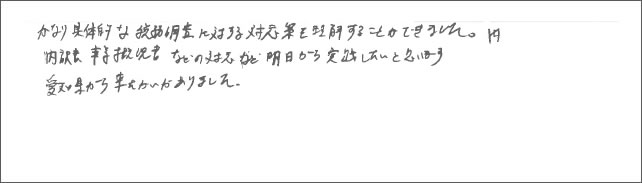 かなり具体的な税務調査に対する対応策を理解することができました。内
内訳書 事業概況書 などの対応など 明日から実践したいと思います
愛知県から来たかいがありました。